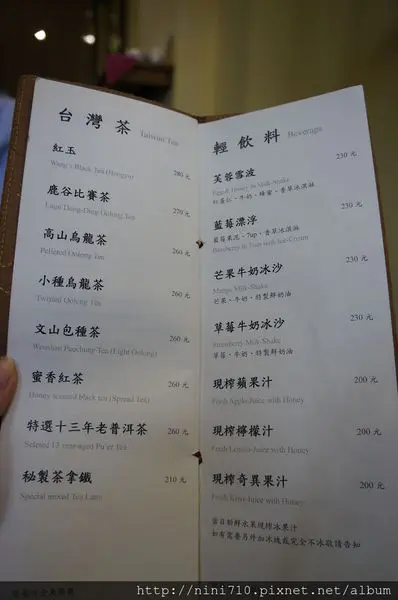 台灣茶 Taiwan Tea
紅玉
280 元
鹿谷比賽茶
270 元
Lugu Dong-Ding Oolong Tea
高山烏龍茶
260 元
Pelleted Oolong Tea
小種烏龍茶
260 元
Twisted Oolong Tea
文山包種茶
260 元
Wenshan Pauchung Tea (Light Oolong)
蜜香紅茶
260 元
Honey scented black tea (Spread Tea)
特選十三年老普洱茶
260 元
Seleted 13 year-aged Pu'er Tea
秘製茶拿鐵
210 元
Special mixed Tea Latte
輕飲料 Beverage
芙蓉雪波
230 元
Egg & Honey in Milk-Shake
紅蛋仁、牛奶、蜂蜜、香草冰淇淋
藍莓漂浮
230 元
藍莓果泥、7up、香草冰淇淋
Blueberry in 7up with Ice-Cream
芒果牛奶冰沙
230 元
Mango Milk-Shake
芒果、牛奶、特製鮮奶油
草莓牛奶冰沙
230 元
Strawberry Milk-Shake
草莓、牛奶、特製鮮奶油
現榨蘋果汁
200 元
Fresh Apple-Juice with Honey
現榨檸檬汁
200 元
Fresh Lemon-Juice with Honey
現榨奇異果汁
200 元
Fresh Kiwi-Juice with Honey
當日新鮮水果現榨冰果汁
如有需要另外加冰塊或完全不冰敬請告知
http://nini710.pixnet.net/album